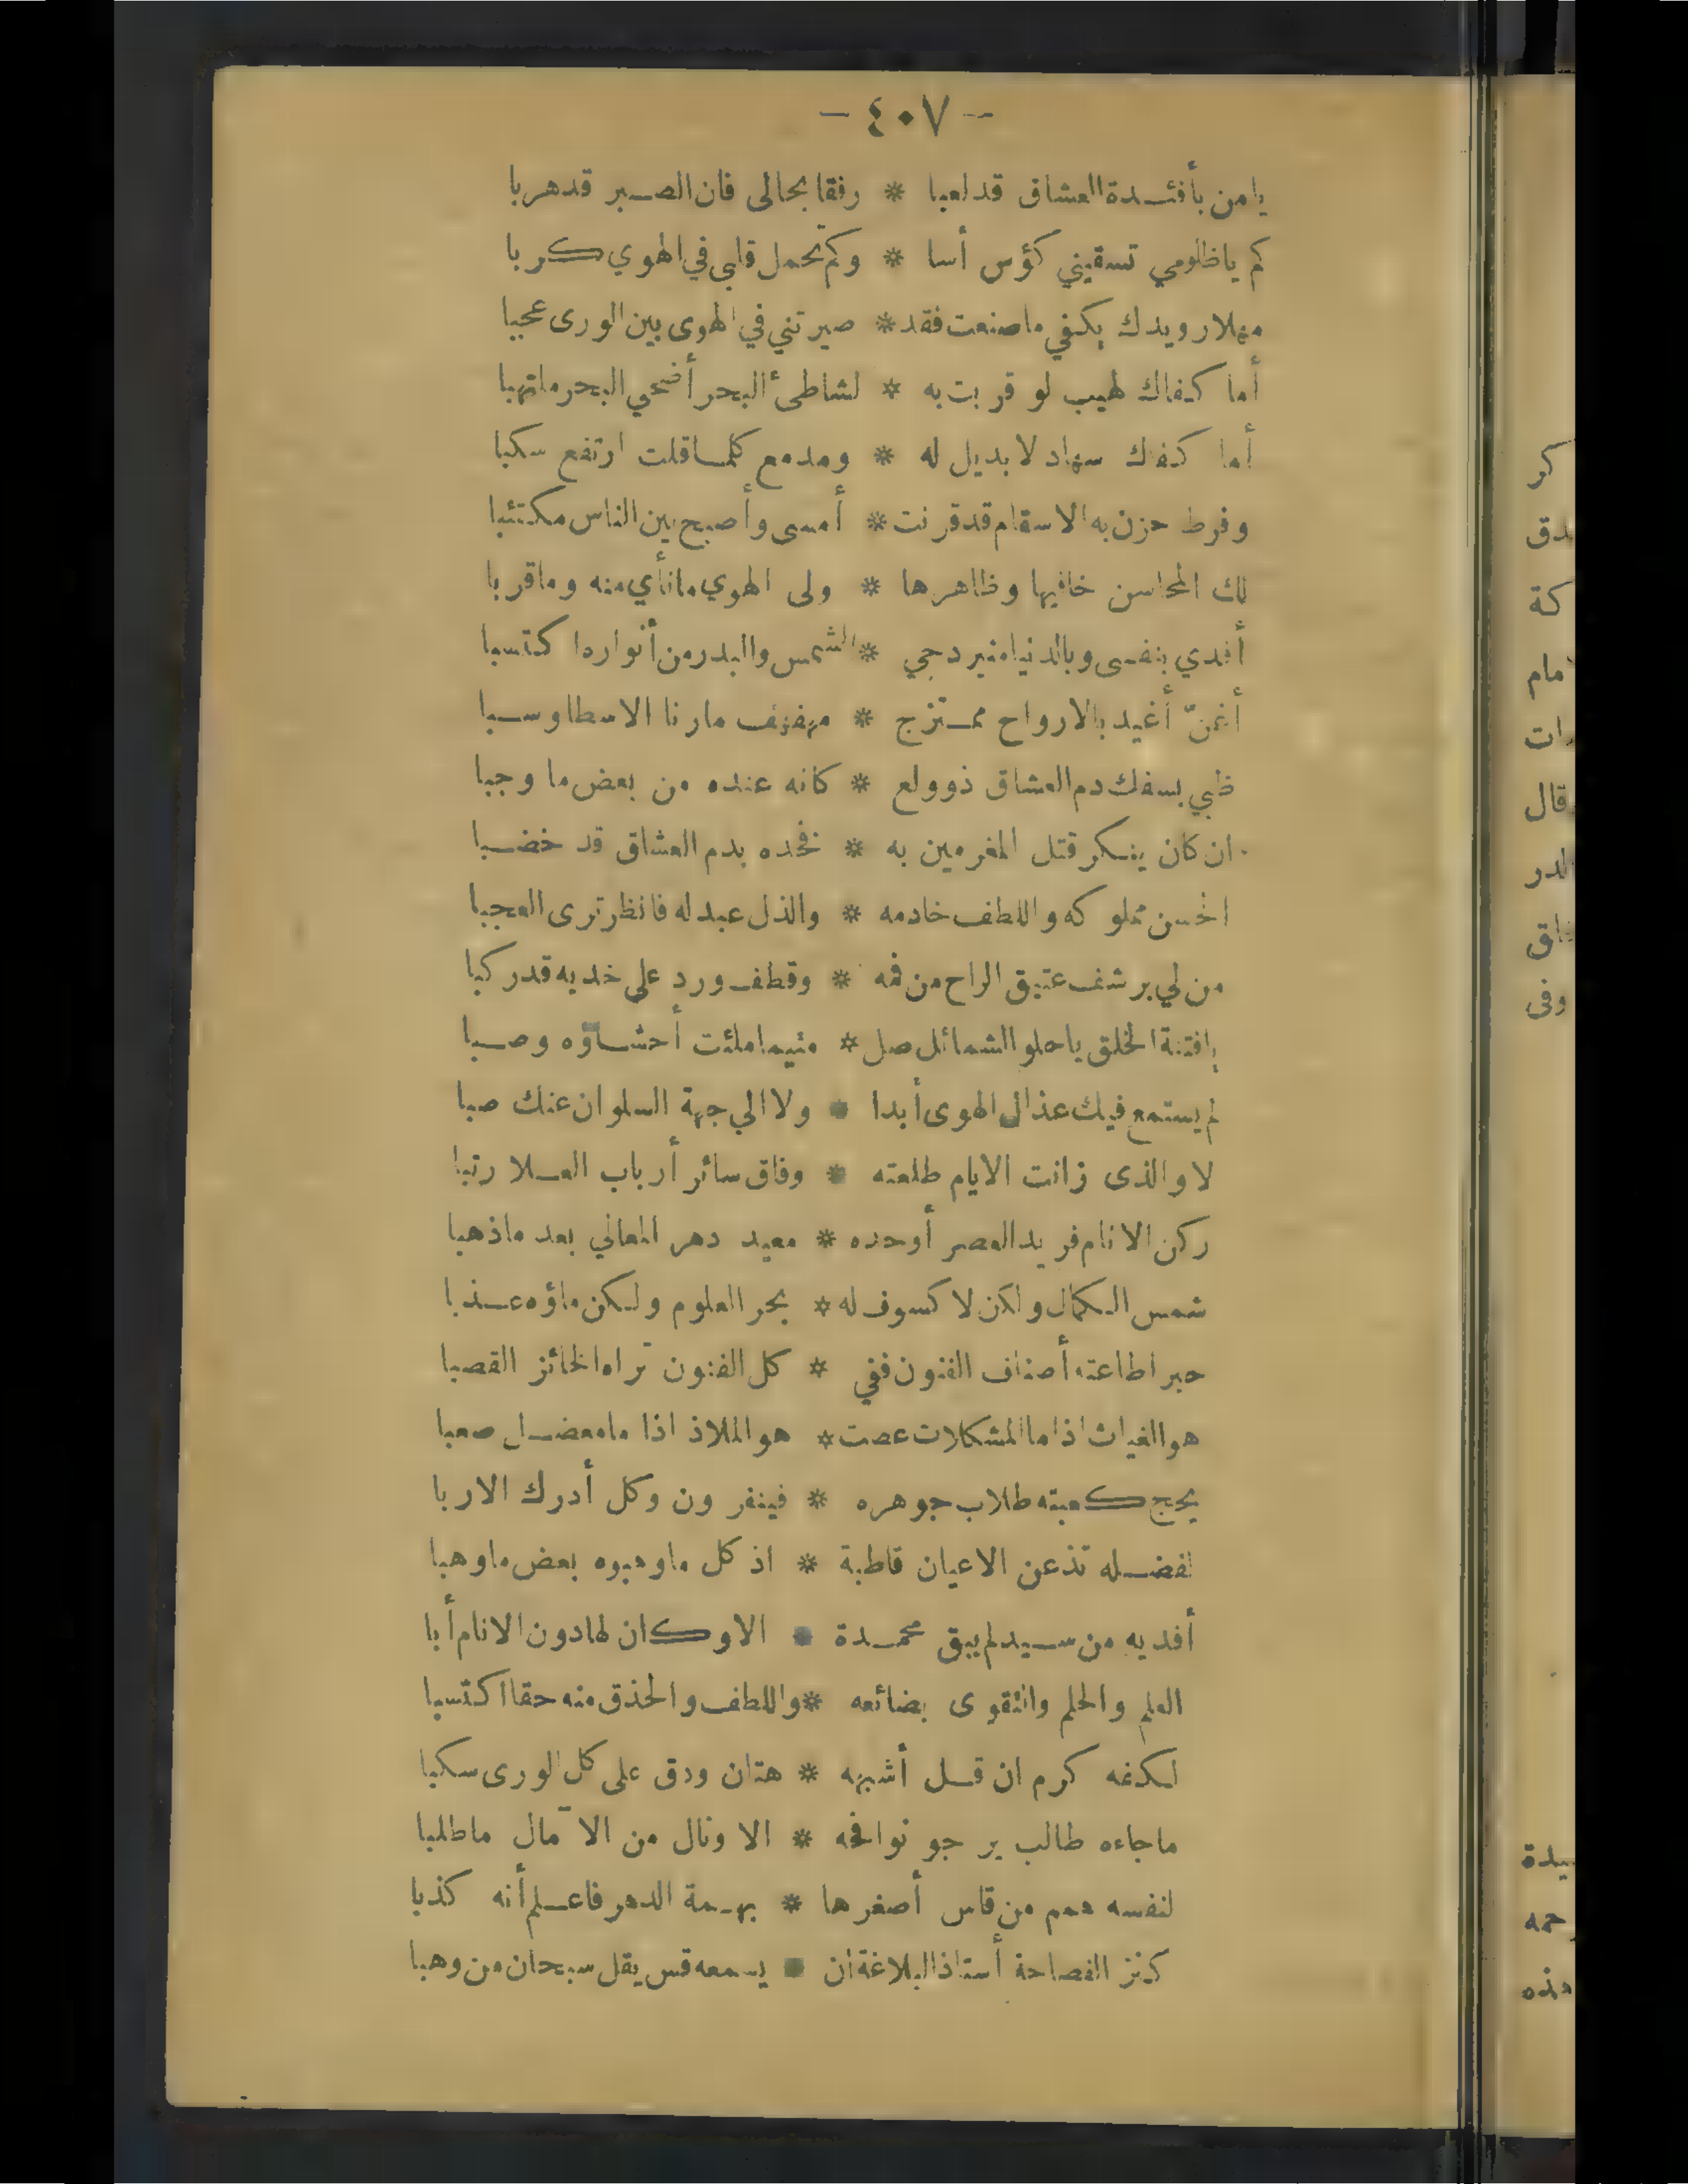 - ٤٠٧ -
يا من بأفئدة العشاق قد لعبا * رفقا بحالى فان الصبر قد هربا
كم يا ظلومي تسقيني كؤس أسا * وكم تحمل قلبى في الهوي كربا
مهلا رويدك يكفي ما صنعت فقد * صيرتني في الهوى بين الورى عجبا
أما كفاك لهيب لو قربت به * لشاطئ البحر أضحي البحر ملتهبا
أما كفاك سهاد لا بديل له * ومدمع كلما قلت ارتفع سكبا
وفرط حزن به الاسقام قد قرنت * أمسى وأصبح بين الناس مكتئبا
لك المحاسن خافيها وظاهرها * ولى الهوي ما نأي منه وما قربا
أفدي بنفسى وبالدنيا منير دجي * الشمس والبدر من أنواره اكتسبا
أغنّ أغيد بالارواح ممتزج * مهفهف ما رنا الا سطا وسبا
ظبي بسفك دم العشاق ذو ولع * كانه عنده من بعض ما وجبا
ان كان ينكر قتل المغرمين به * فخده بدم العشاق قد خضبا
الحسن مملوكه واللطف خادمه * والذل عبد له فانظر ترى العجبا
من لي برشف عتيق الراح من فمه * وقطف ورد على خديه قد ركبا
يا فتنة الخلق يا حلو الشمائل صل * متيما ملئت أحشاؤه وصبا
لم يستمع فيك عذال الهوى أبدا * ولا الي جهة السلوان عنك صبا
لا والذى زانت الايام طلعته * وفاق سائر أرباب العلا رتبا
ركن الانام فريد العصر أوحده * معيد دهر المعاني بعد ما ذهبا
شمس الكمال ولكن لا كسوف له * بحر العلوم ولكن ماؤه عذبا
حبر اطاعته أصناف الفنون ففي * كل الفنون تراه الحائز القصبا
هو الغياث اذا ما المشكلات عصت * هو الملاذ اذا ما معضل صعبا
يحج كعبته طلاب جوهره * فينفرون وكل أدرك الاربا
لفضله تذعن الاعيان قاطبة * اذ كل ما وهبوه بعض ما وهبا
أفديه من سيد لم يبق محمدة * الا وكان لها دون الانام أبا
العلم والحلم والتقوى بضائعه * واللطف والحذق منه حقا اكتسبا
لكفه كرم ان قل أشبهه * هتان ودق على كل الورى سكبا
ما جاءه طالب يرجو نوافحه * الا ونال من الآمال ما طلبا
لنفسه همم من قاس أصغرها * بهمة الدهر فاعلم أنه كذبا
كنز الفصاحة أستاذ البلاغة ان * يسمعه قس يقل سبحان من وهبا
كر
دق
كة
مام
ات
قال
لدر
اق
وفى
يدة
حمه
هذه